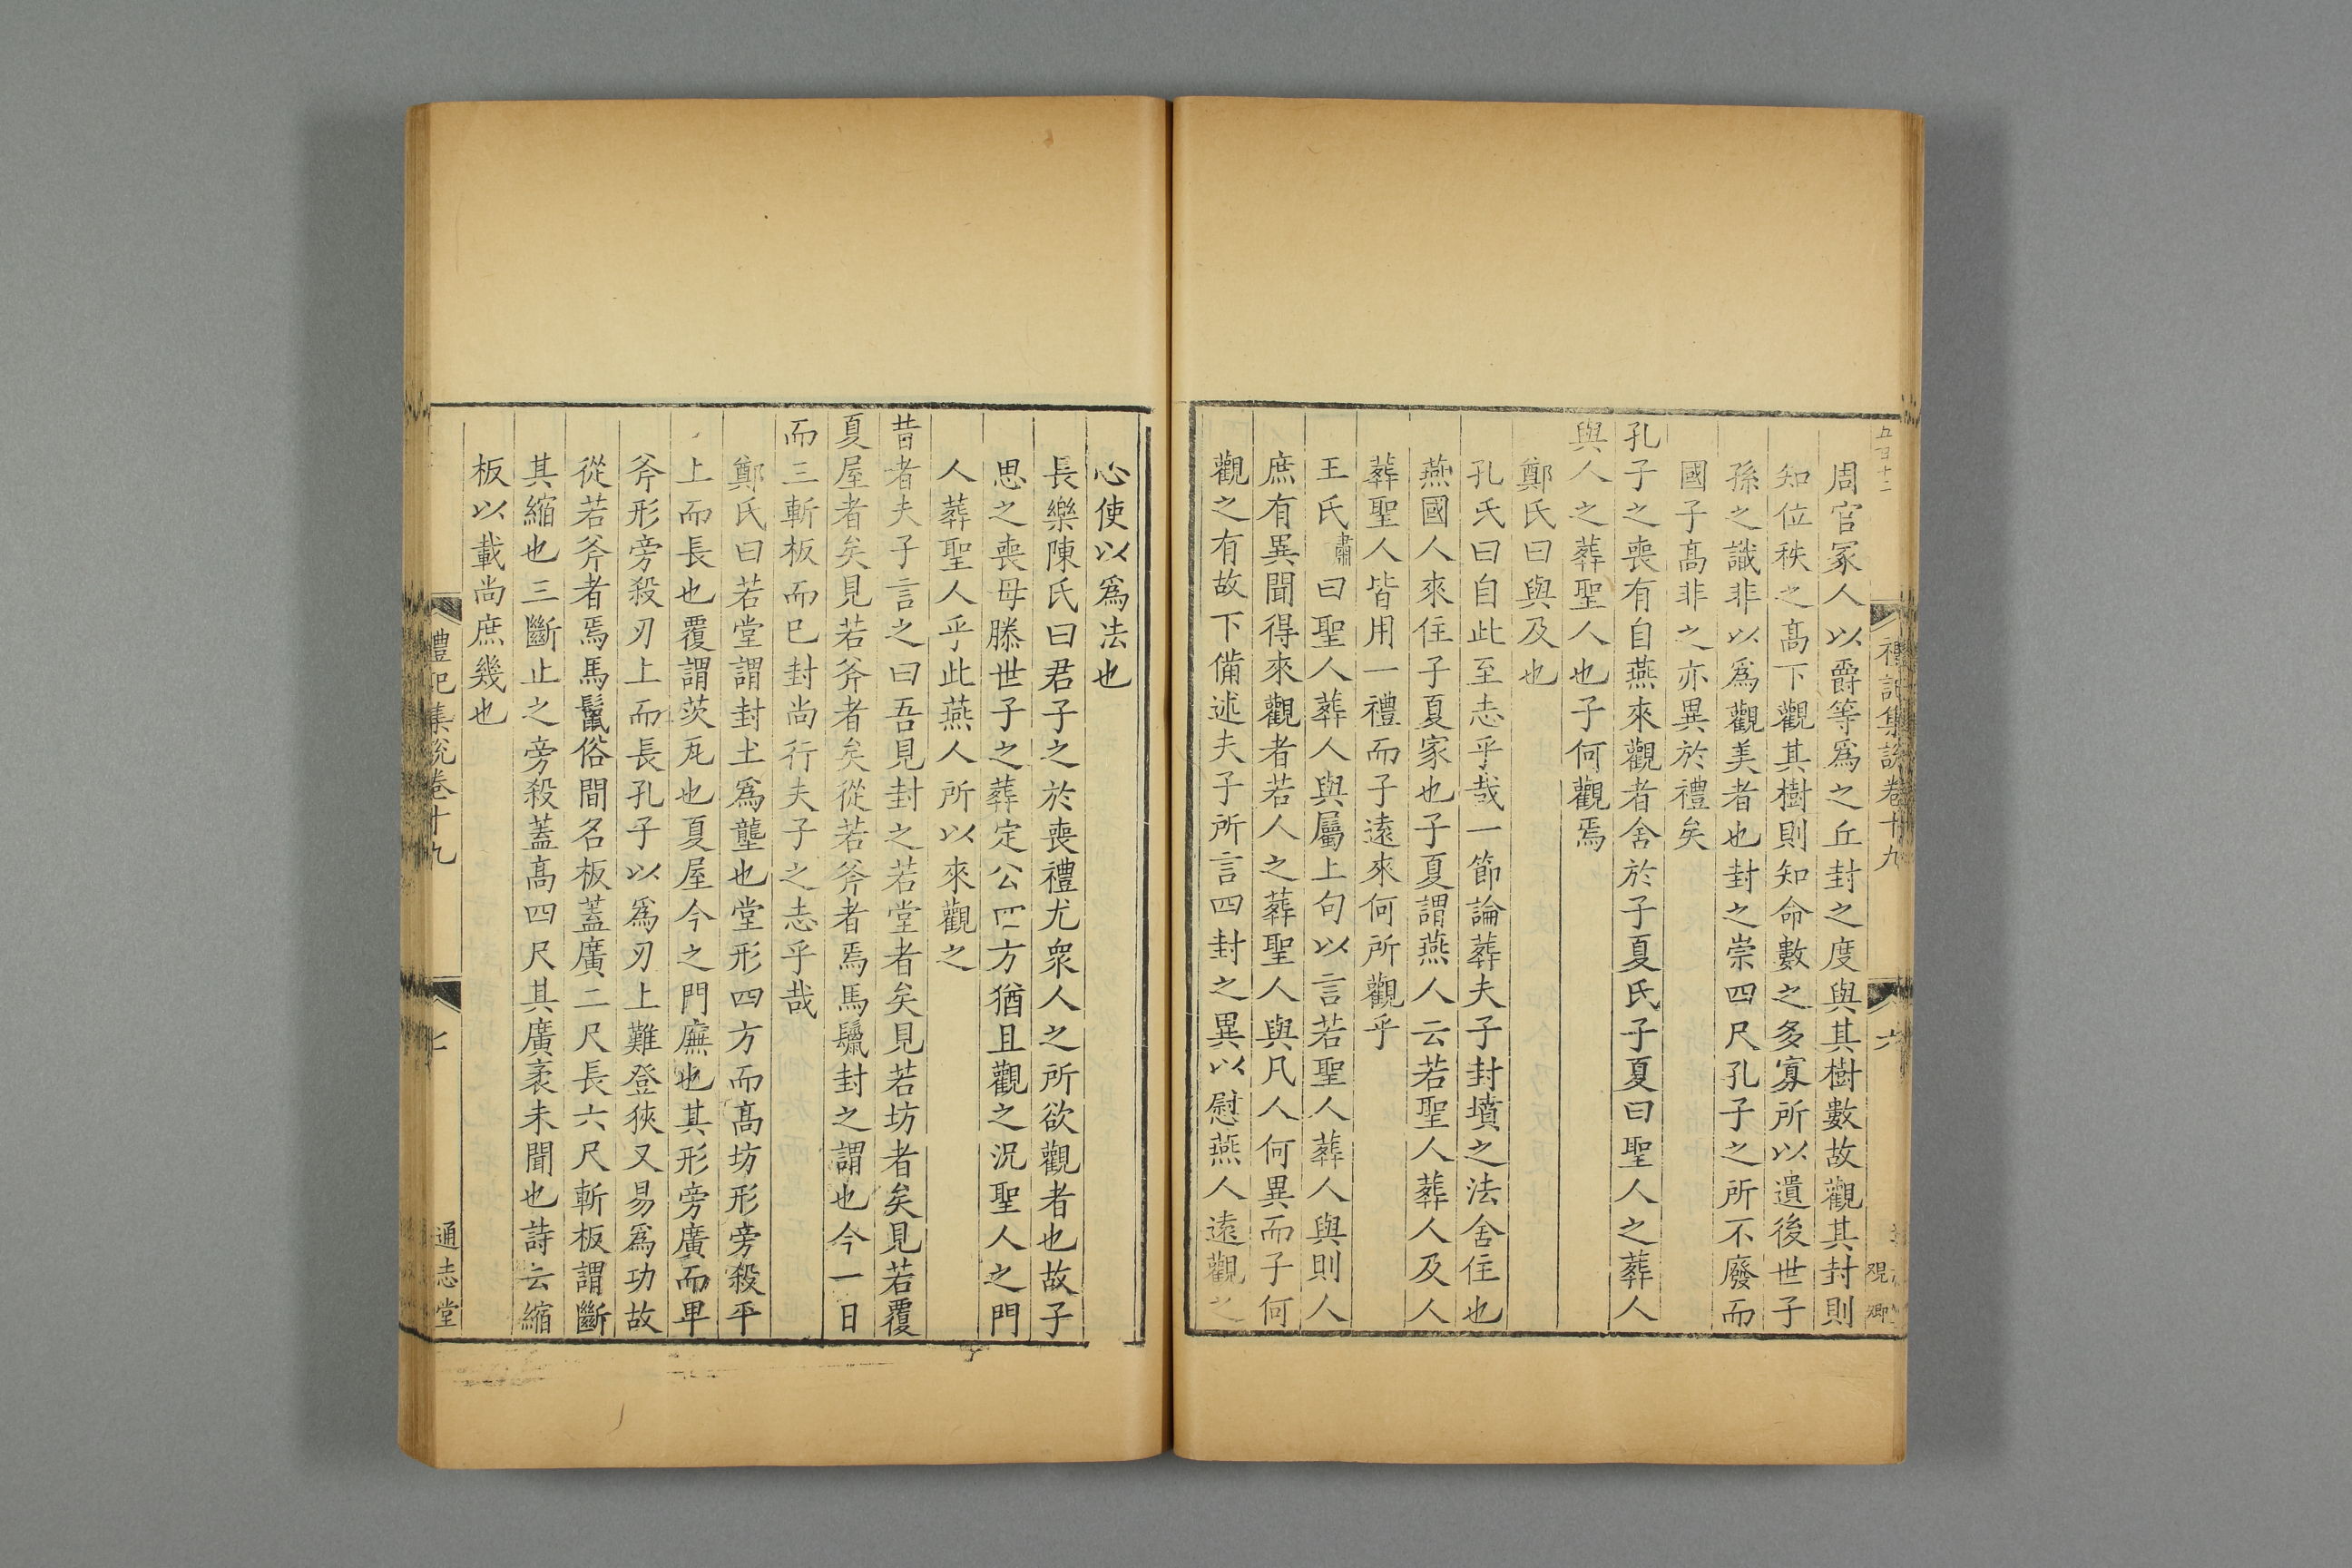 五百十二
禮記集說卷十九
六
周官冢人以爵等爲之丘封之度與其樹數故觀其封則
知位秩之髙下觀其樹則知命數之多寡所以遺後世子
孫之識非以爲觀美者也封之崇四尺孔子之所不廢而
國子髙非之亦異於禮矣
孔子之喪有自燕來觀者舍於子夏氏子夏曰聖人之葬人
與人之葬聖人也子何觀焉
鄭氏曰與及也
孔氏曰自此至志乎哉一節論葬夫子封墳之法舍住也
燕國人來住子夏家也子夏謂燕人云若聖人葬人及人
葬聖人皆用一禮而子遠來何所觀乎
王氏肅曰聖人葬人與屬上句以言若聖人葬人與則人
庶有異聞得來觀者若人之葬聖人與凡人何異而子何
觀之有故下備述夫子所言四封之異以慰燕人遠觀之
心使以爲法也
長樂陳氏曰君子之於喪禮尤衆人之所欲觀者也故子
思之喪母滕世子之葬定公四方猶且觀之況聖人之門
人葬聖人乎此燕人所以來觀之
昔者夫子言之曰吾見封之若堂者矣見若坊者矣見若覆
夏屋者矣見若斧者矣從若斧者焉馬鬛封之謂也今一日
而三斬板而巳封尚行夫子之志乎哉
鄭氏曰若堂謂封土爲壟也堂形四方而髙坊形旁殺平
上而長也覆謂茨瓦也夏屋今之門廡也其形旁廣而卑
斧形旁殺刃上而長孔子以爲刃上難登狹又易爲功故
從若斧者焉馬鬛俗間名板蓋廣二尺長六尺斬板謂斷
其縮也三斷止之旁殺蓋髙四尺其廣袤未聞也詩云縮
板以載尚庶幾也
禮記集說卷十九
七
通志堂